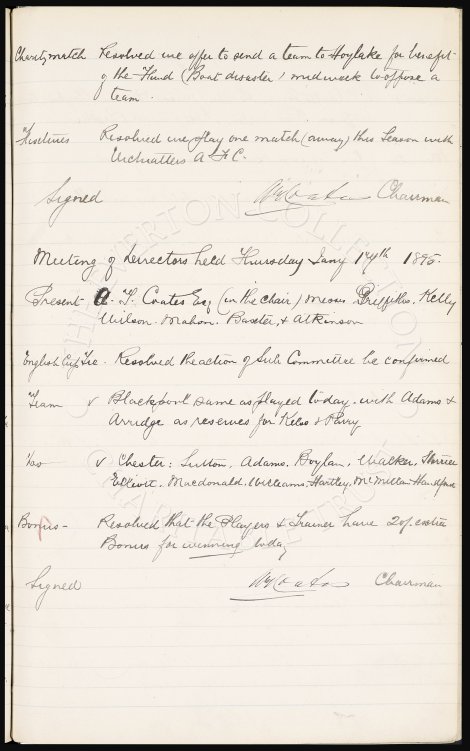 Charity match Resolved we offer to send a team to Hoylake for benefit
of the Fund (Boat disaster) midweek to oppose a
team.
Fixtures Resolved we play one match (away) this Season with
A F C.
Signed Chairman
Meeting of Directors held Thursday Jany 17th 1895.
Present A. T. Coates Esq (in the chair) Messrs Griffiths, Kelly
Wilson. Mahon. Baxter, & Atkinson
English Cup Tie. Resolved the action of Sub Committee be confirmed
Team v Blackpool same as played today. with Adams &
Arridge as reserves for Kelso & Parry
Do v Chester: Sutton, Adams. Boylan, Walker,
Elliott. Macdonald, Williams, Hartley, McMillan
Bonus - Resolved that the Players & Trainer have 20/- extra
Bonus for winning today
Signed Chairman
THE EVERTON COLLECTION
CHARITABLE TRUST